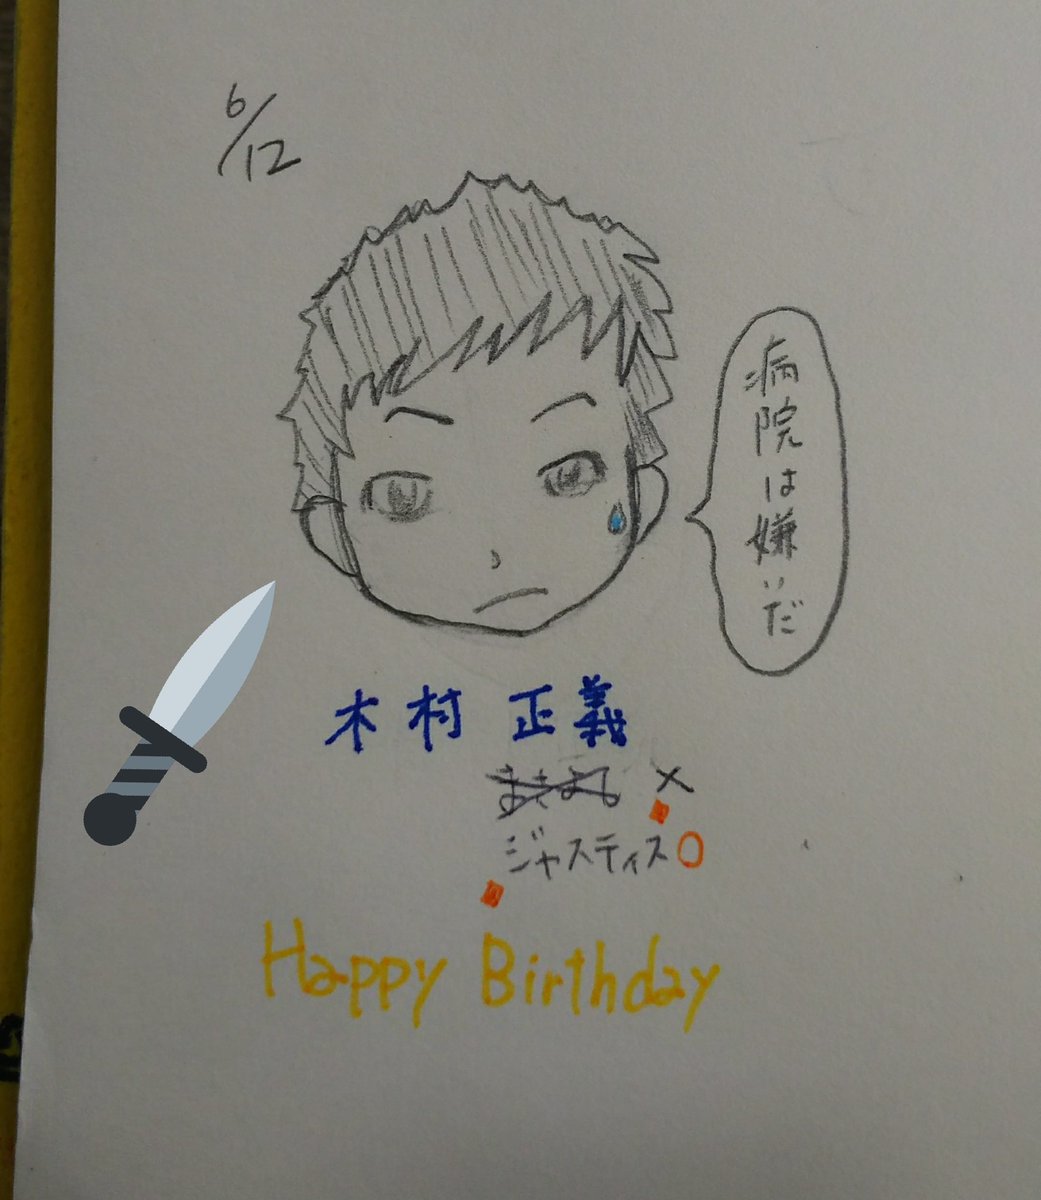 6/12
病院は嫌いだ
木村 正義
まさよし ×
ジャスティス○
Happy Birthday